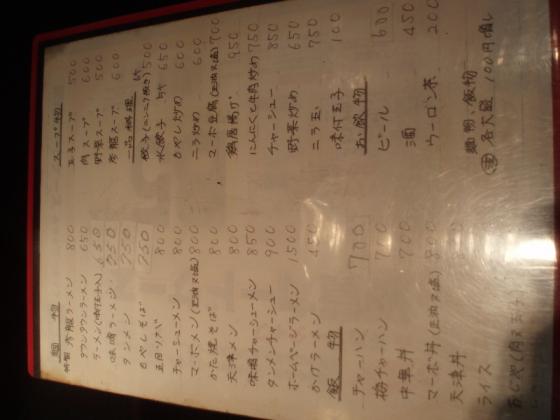 麺物
特製 冷麺ラーメン 800
タンタンラーメン 650
ラーメン(味付玉子入) 650
味噌ラーメン 750
タンメン 750
もやしそば 750
五目ソバ 800
チャーシューメン 800
マーボメン(正油又塩) 800
かた焼そば 800
天津メン 800
味噌チャーシューメン 850
タンメンチャーシュー 900
ホームページラーメン 1500
かけラーメン 450
飯物
チャーハン 700
梅チャーハン 700
中華丼 700
マーボ丼(正油又塩) 800
天津丼
ライス
スープ物
玉子スープ 500
肉スープ 600
野菜スープ 500
冷麺スープ 600
一品料理
餃子(ニンニク抜き) 5ヶ 500
水餃子 5ヶ 650
もやし炒め 600
ニラ炒め 600
マーボ豆腐(正油又塩) 700
鶏唐揚げ 950
にんにくと牛肉炒め 750
チャーシュー 850
野菜炒め 650
ニラ玉 750
味付玉子 100
お飲物
ビール 600
酒 450
ウーロン茶 200
麺物、飯物
各大盛 100円増し